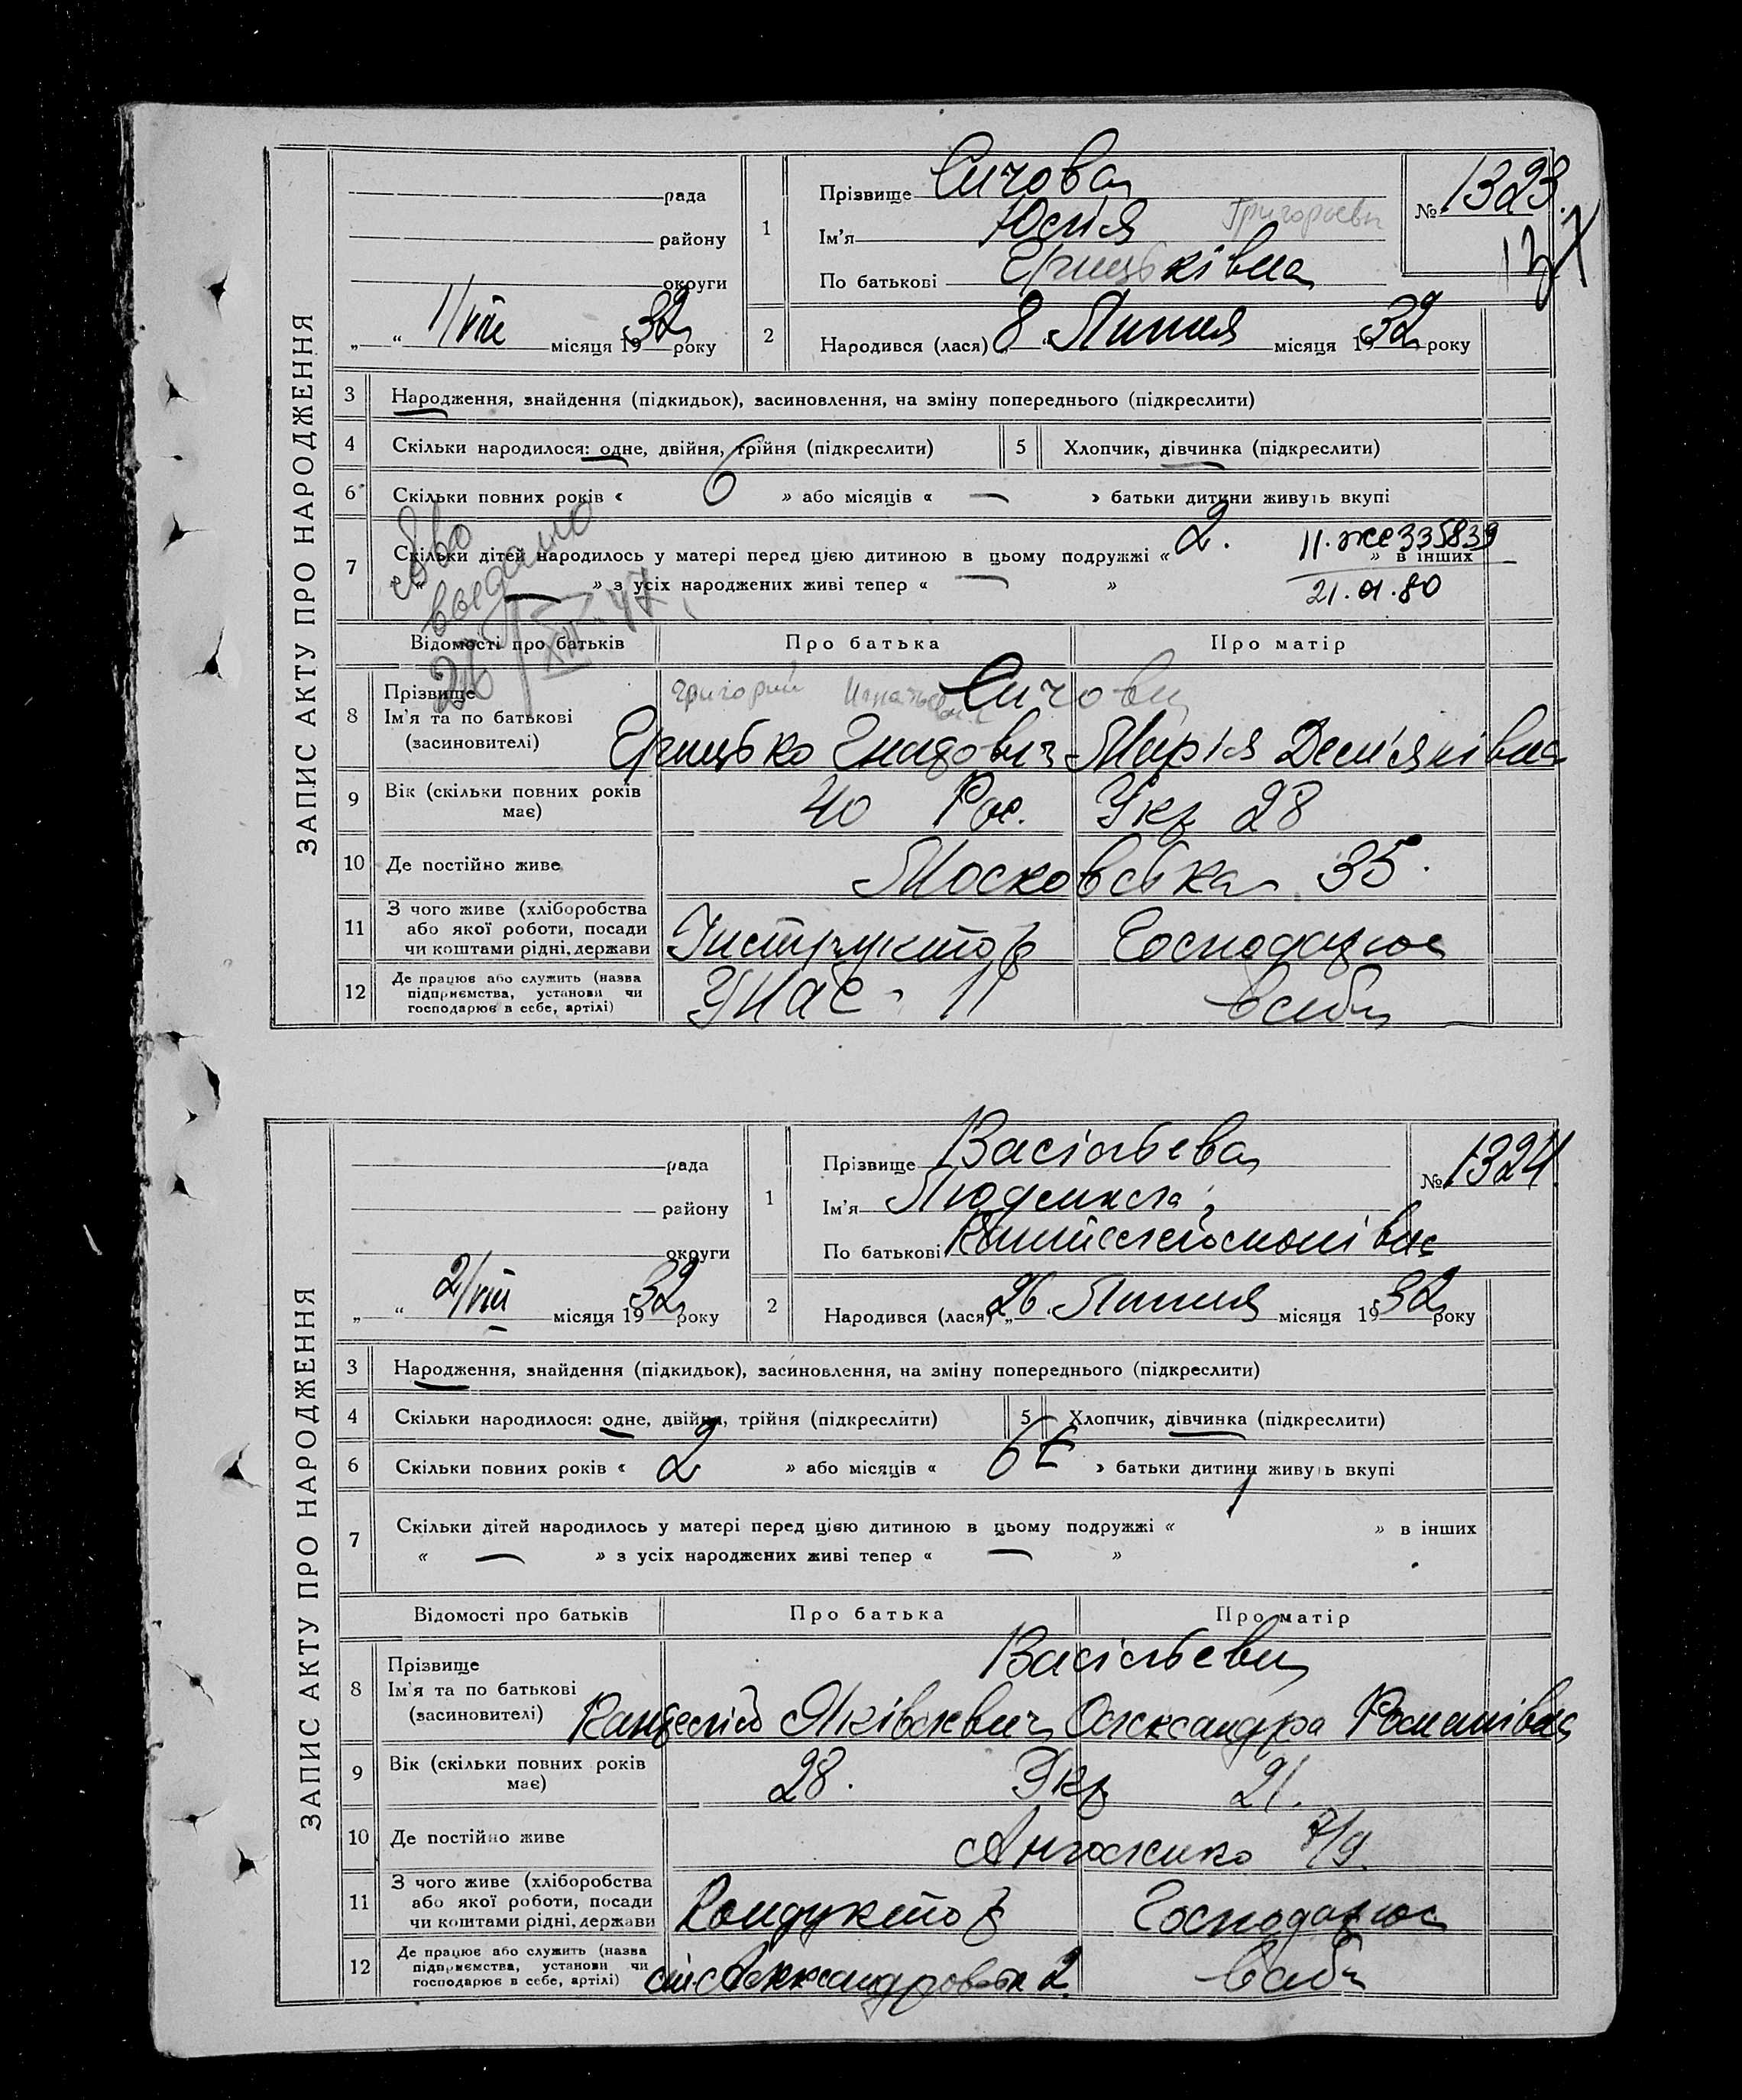 ЗАПИС АКТУ ПРО НАРОДЖЕННЯ
рада
району
округи
1/VIII місяця 1932 року
1
Прізвище Сичова
Ім'я Юлія Григорьевн
По батькові Грицьківна
№ 1323.
2
Народився (лася) 8 Липня місяця 1932 року
3 Народження, знайдення (підкидьок), засиновлення, на зміну попереднього (підкреслити)
4 Скільки народилося: одне, двійня, трійня (підкреслити) 5 Хлопчик, дівчинка (підкреслити)
6 Скільки повних років « 6 » або місяців « — » батьки дитини живуть вкупі
7 Скільки дітей народилось у матері перед цією дитиною в цьому подружжі « 2. » в інших
« — » з усіх народжених живі тепер « — »
II·ЖЕ335839
21.01.80
26/XII-47
Відомості про батьків Про батька Про матір
8 Прізвище
Ім'я та по батькові
(засиновителі)
Григорий Сичови
Грицько Гнатович Марія Дем'янівна
9 Вік (скільки повних років має) 40 Рос. Укр 28
10 Де постійно живе Московська 35.
11 З чого живе (хліборобства або якої роботи, посади чи коштами рідні, держави Інструктор Господарює
12 Де працює або служить (назва підприємства, установи чи господарює в себе, артілі) в себе
ЗАПИС АКТУ ПРО НАРОДЖЕННЯ
рада
району
округи
2/VIII місяця 1932 року
1
Прізвище Васільєва
Ім'я Людмила
По батькові
№ 1324.
2
Народився (лася) 26 Липня місяця 1932 року
3 Народження, знайдення (підкидьок), засиновлення, на зміну попереднього (підкреслити)
4 Скільки народилося: одне, двійня, трійня (підкреслити) 5 Хлопчик, дівчинка (підкреслити)
6 Скільки повних років « 2 » або місяців « 6 » батьки дитини живуть вкупі
7 Скільки дітей народилось у матері перед цією дитиною в цьому подружжі « 1 » в інших
« — » з усіх народжених живі тепер « — »
Відомості про батьків Про батька Про матір
8 Прізвище
Ім'я та по батькові
(засиновителі)
Васільєви
Яківлевич Олександра Романівна
9 Вік (скільки повних років має) 28. Укр 21.
10 Де постійно живе 7/9.
11 З чого живе (хліборобства або якої роботи, посади чи коштами рідні, держави Кондуктор Господарює
12 Де працює або служить (назва підприємства, установи чи господарює в себе, артілі) в себе